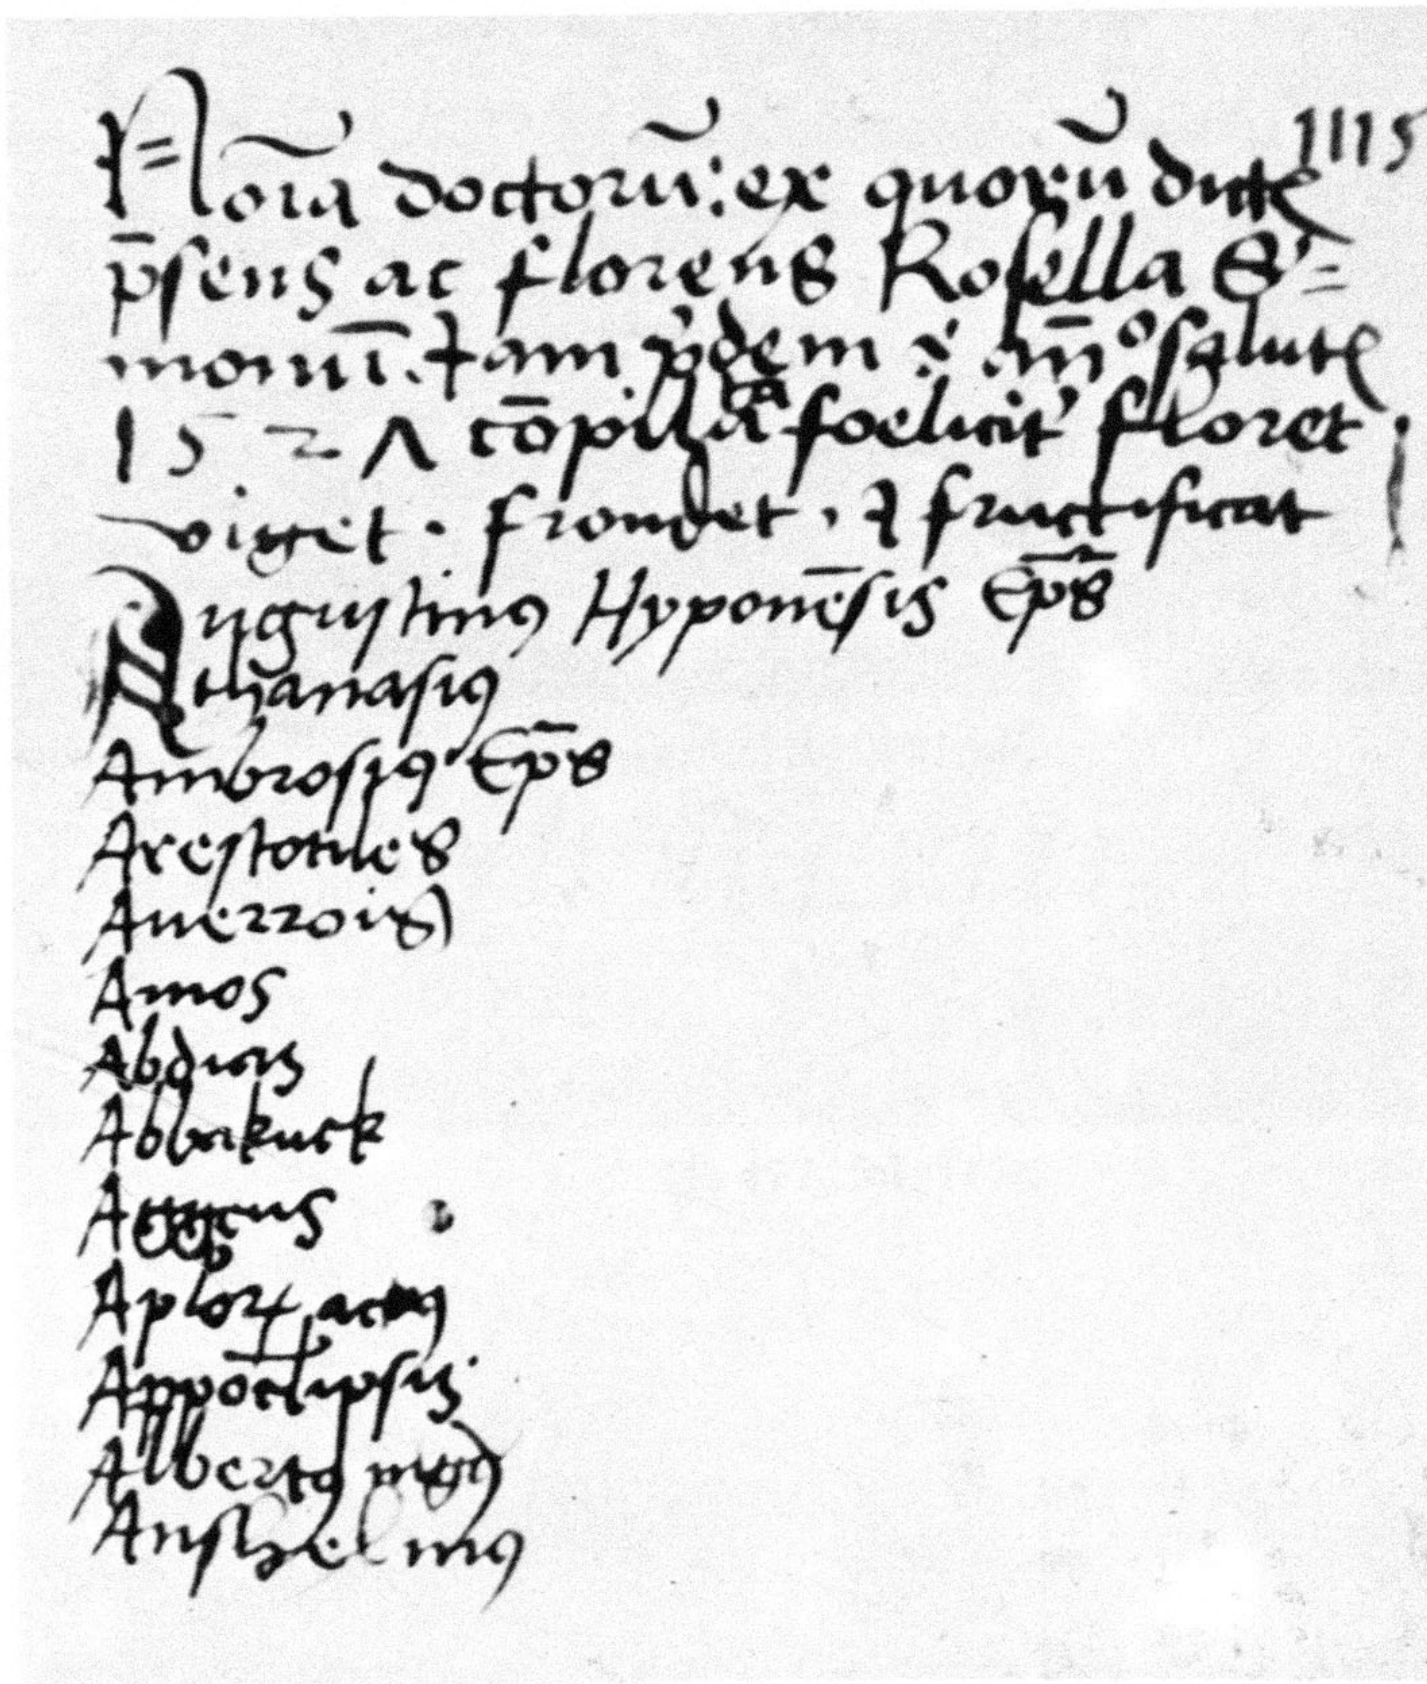 1115
Noīa doctorū: ex quorū dictꝭ
p̄sens ac florens Rosella S̓=
monū. tam p̓dem ī ān̄o salutꝭ
1527 cōpilata foelicit̓ floret
viget. frondet. ⁊ fructificat
Augustinꝰ Hyponēsis Ep̄s
Athanasiꝰ
Ambrosiꝰ Ep̄s
Arestotiles
Auerrois
Amos
Abdias
Abbakuck
Aggeus
Aploꝝ actꝰ
Appoc̄lipsis
Albertꝰ mgꝰ
Anshelmꝰ